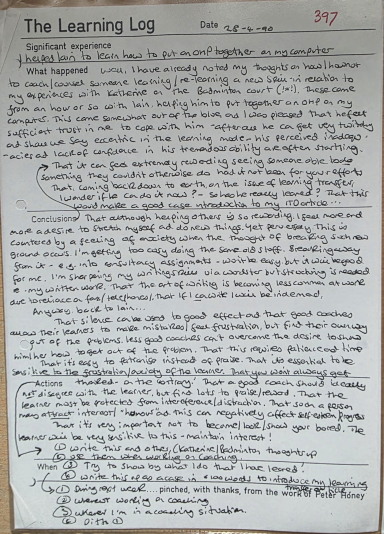 The Learning Log Date 28-4-90
397
Significant experience
I helped Iain to learn how to put an OHP together on my computer
What happened Well, I have already noted my thoughts on how/how not
to coach/counsel someone learning/re-learning a new skill in relation to
my experiences with Katherine on the Badminton court (!*!). these came
from an hour or so with Iain, helping him to put together an OHP on my
computer. This came somewhat out of the blue and I was pleased that he felt
sufficient trust in me to cope with him - afterwards he can get very
and shall we say eccentric in the learning mode - his perceived
and lack of confidence in his tremendous ability are often startling.
That it can feel extremely rewarding seeing someone able to do
something they couldn't otherwise do had it not been for your efforts
That, coming back down to earth, on the issue of learning transfer,
I wonder if he can do it now? - so has he really learned? That this
would make a good case introduction to my ITO article...
Conclusions That although helping others is so rewarding, I feel more and
more a desire to stretch myself and do new things. Yet perversely this is
countered by a feeling of anxiety when the thought of breaking such new
ground occurs. I'm getting too easy doing the same old stuff. Breaking away
from it - e.g. into consultancy assignments - won't be easy but it will be good
for me. I'm sharpening my writing skills a la wordster but structuring is needed
e my written work. That the art of writing is becoming less common at work
due to reliance on fax/telephone/. That if I can write I will be in demand.
Anyway, back to Iain...
That silence can be used to good effect and that good coaches
allow their learners to make mistakes/feel frustration, but find their own way
out of the problems. less good coaches can't overcome the desire to show
him/her how to get out of the problem. That this requires patience and time
That it's easy to patronise instead of praise. That it's essential to be
sensitive to the frustration/anxiety of the learner. That you won't always get
Actions thanked - on the contrary. That a good coach should ideally
not disagree with the learner, but find lots to praise/reward. That the
learner must be protected from interference/distraction. That such a person
may attract interest/ humour and this can negatively affect self esteem/progress
That it's very important not to become/look/show your bored. The
learner will be very sensitive to this - maintain interest!
① Write this and other, (Katherine/Badminton thoughts up
② use them when working on coaching
When ③ Try to show by what I do that I have learned!
④ write this up as a case in words to introduce my learning
① During next week....pinched, with thanks, from the work of Peter Honey
② whenever working on coaching
③ whenever I'm in a coaching situation.
④ Ditto ①